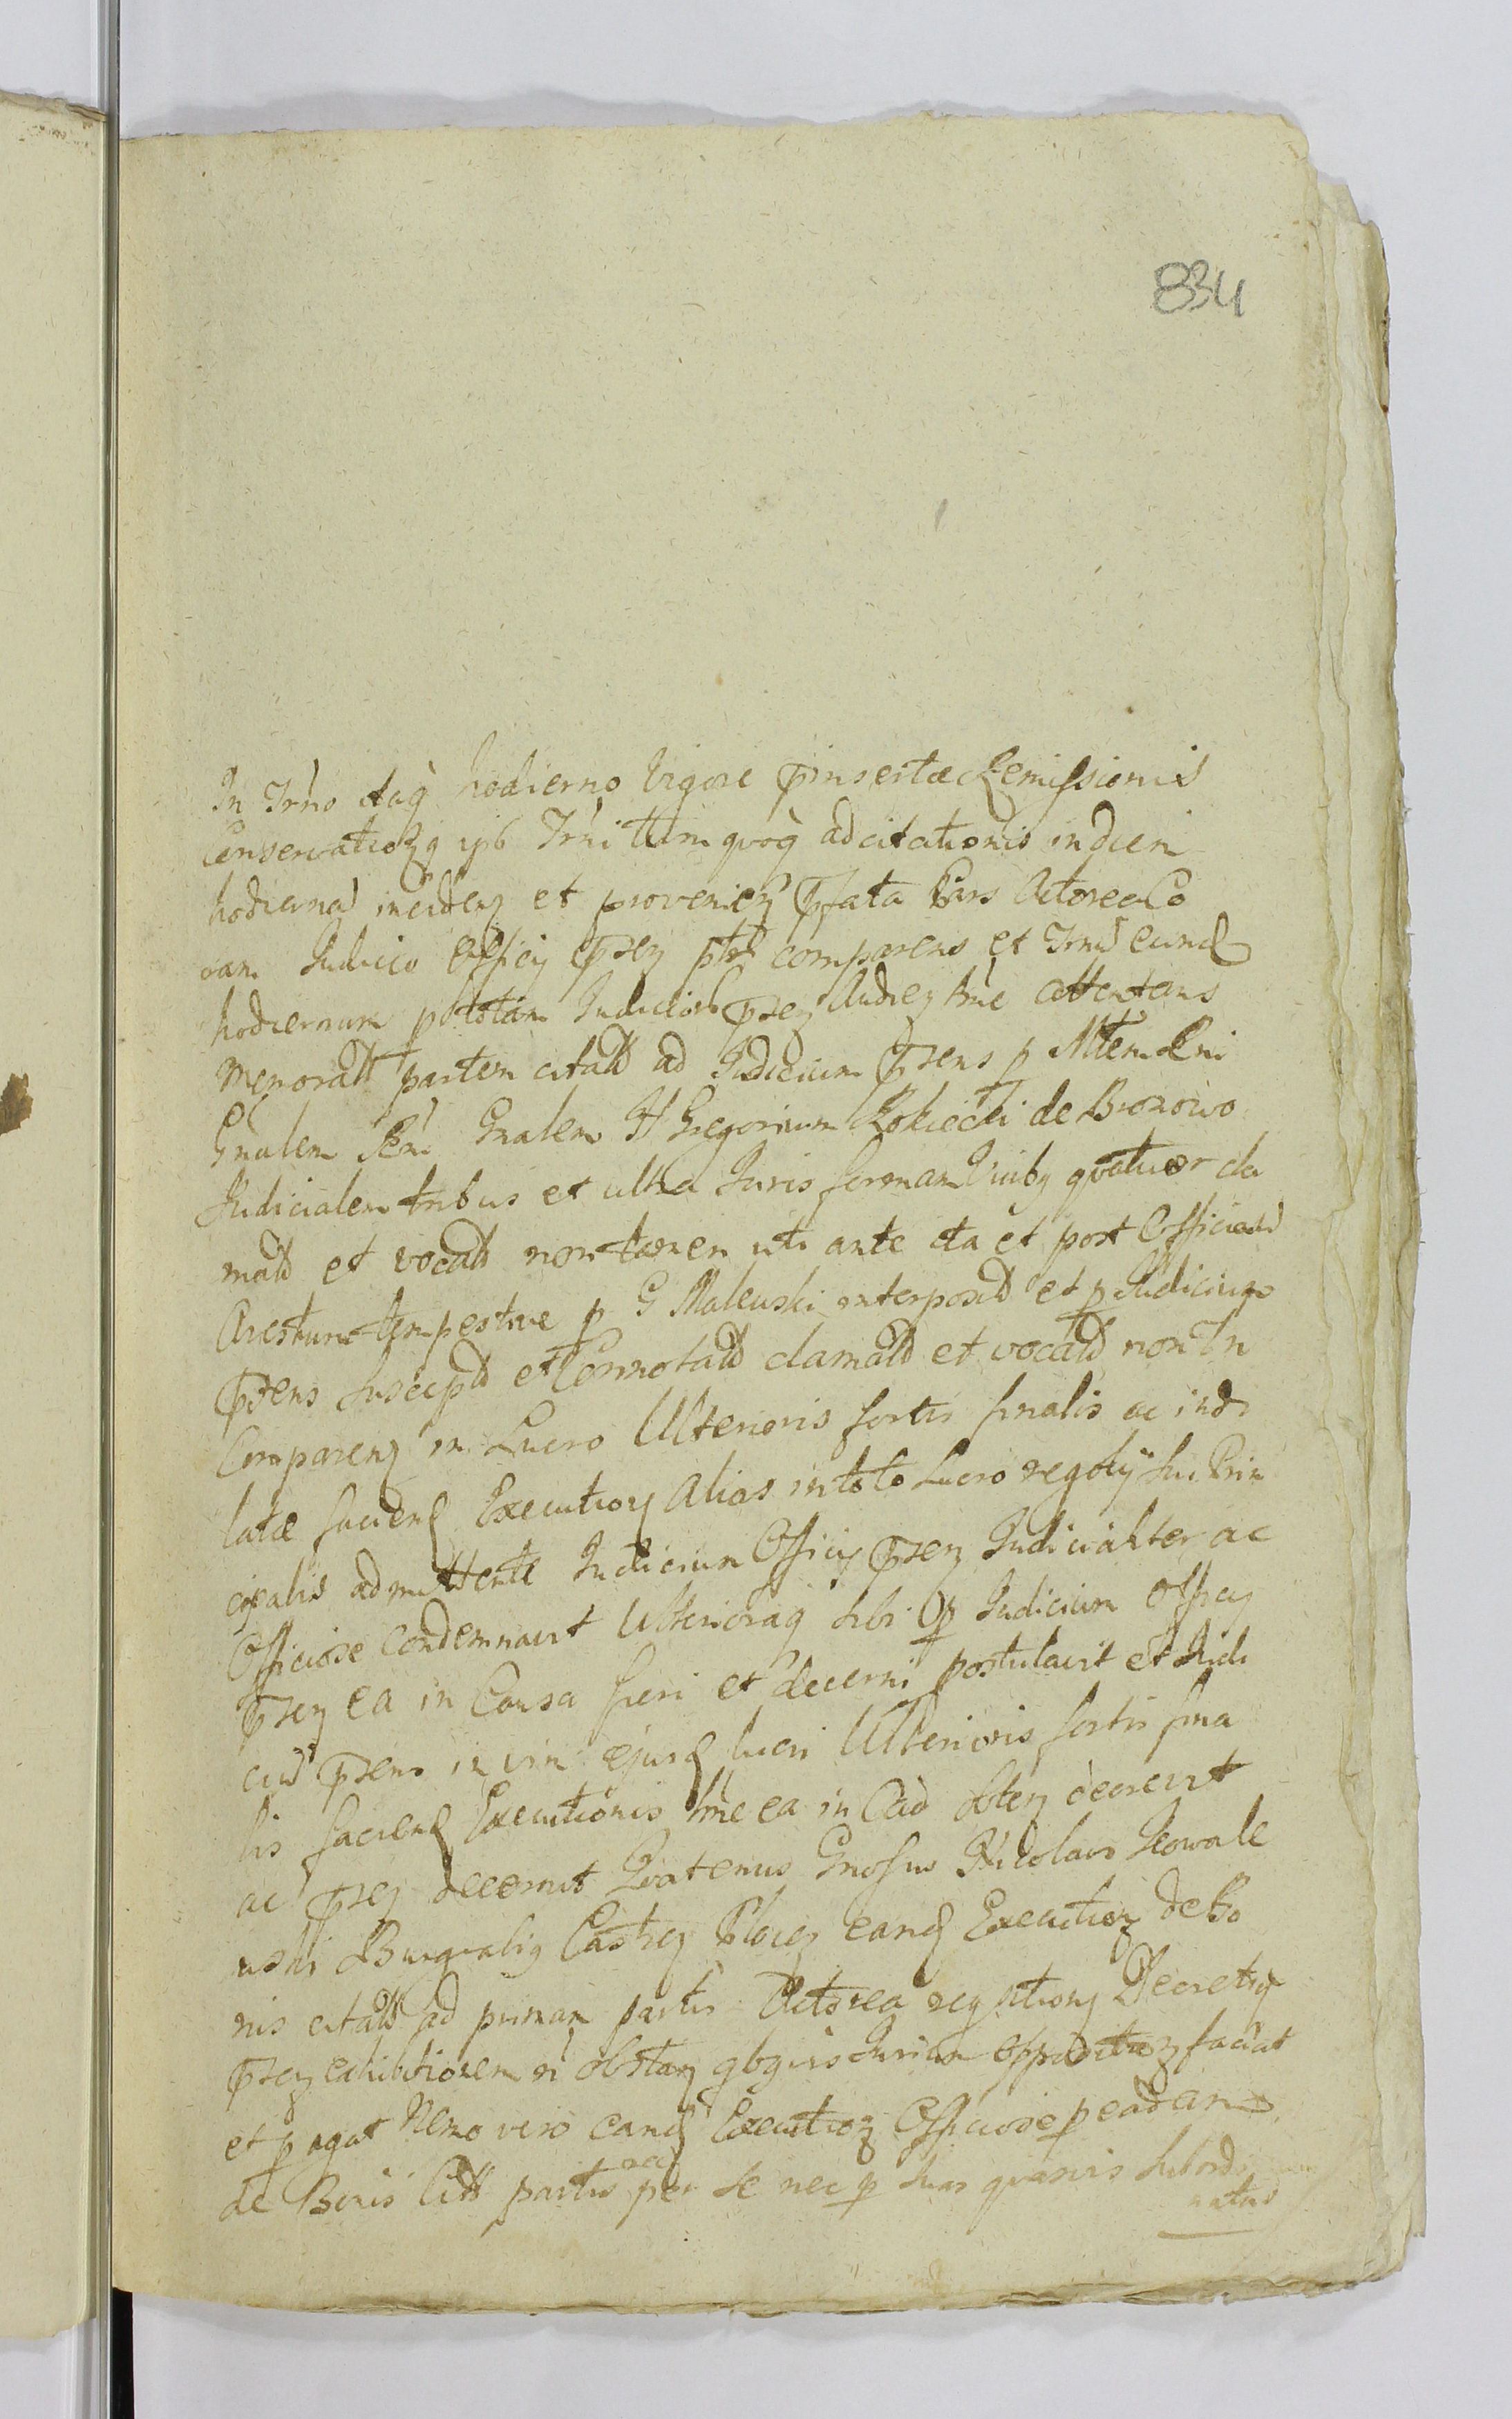 834
In Trno itaq hodierno vigore pinsertæ Remissionis
Conservationq ipb Trni tum quoq ad citationis in diem
hodierna inciden et provenien pfata Pars Actorea Co
ram Judicio Officy psen ptr comparens et Trnu eund
hodiernum Judicior psen Attentans
Memoratt partem citatt ad Judicium psens p Mtem Rni
Gnalem Gnalem H Gregorium Rokiecki de Bronowo
Judicialem tribus et ultra Juris formam vicibq quatuor cla
matt et vocatt non tamen uti ante ita et post Officiatt
Arestum tempestive p G Malewski interposit et p Judicium
psens suscept et Connotatt clamatt et vocatt non Tn
Comparen in Lucro Ulterioris sortis finalis ac indi
latæ faciend Execution alias in toto Lucro negoty sui Prin
cipalis admittente Judicium Officy psen Judicialiter ac
Officiose Condemnavit Ulterioraq sibi p Judicium Officy
psen ea in Causa fieri et decerni postulavit et Judi
ciu psens in vim ejusd lucri Ulterioris sortis fina
lis faciend Executionis hnc ea in Cad decrevit
ac psen decernit Quatenus Gnosus Nicolaus Kowale
wski Burgrabig Castren Plocen eand Execution de Bo
nis citatt ad primam partis Actorea requisitiony Decretiq
psen exhibitionem n obstan qbqvis Jurium oppositionq faciat
et p agat Nemo vero eand Execution Officiose peadam
de Bonis Citt partis nec per se nec p suas quasvis subordi
natas